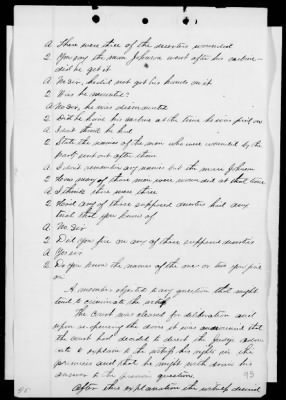 A There were three of the deserters wounded
Q You say the man Johnson went after his carbine -
did he get it
A No Sir, he did not get his hands on it
Q Was he mounted?
A No Sir, he was dismounted
Q Did he have his carbine at the time he was fired on
A I dont think he had
Q State the names of the men who were wounded by the
party sent out after them
A I don't remember any names but the name Johnson
Q How many of those men were wounded at that time
A I think there were three
Q Have any of these supposed deserters had any
trial that you know of
A No Sir
Q Did you fire on any of these supposed deserters
A Yes sir
Q Do you know the names of the one or two you fired
on
A member objected to any question that might
tend to criminate the witness
The Court was cleared for deliberation and
upon re-opening the doors it was announced that
the court had decided to direct the judge advocate
to explain to the witness his rights in the
premises and that he might withdraw his
answer to the previous question.
95
After this explanation the witness desired